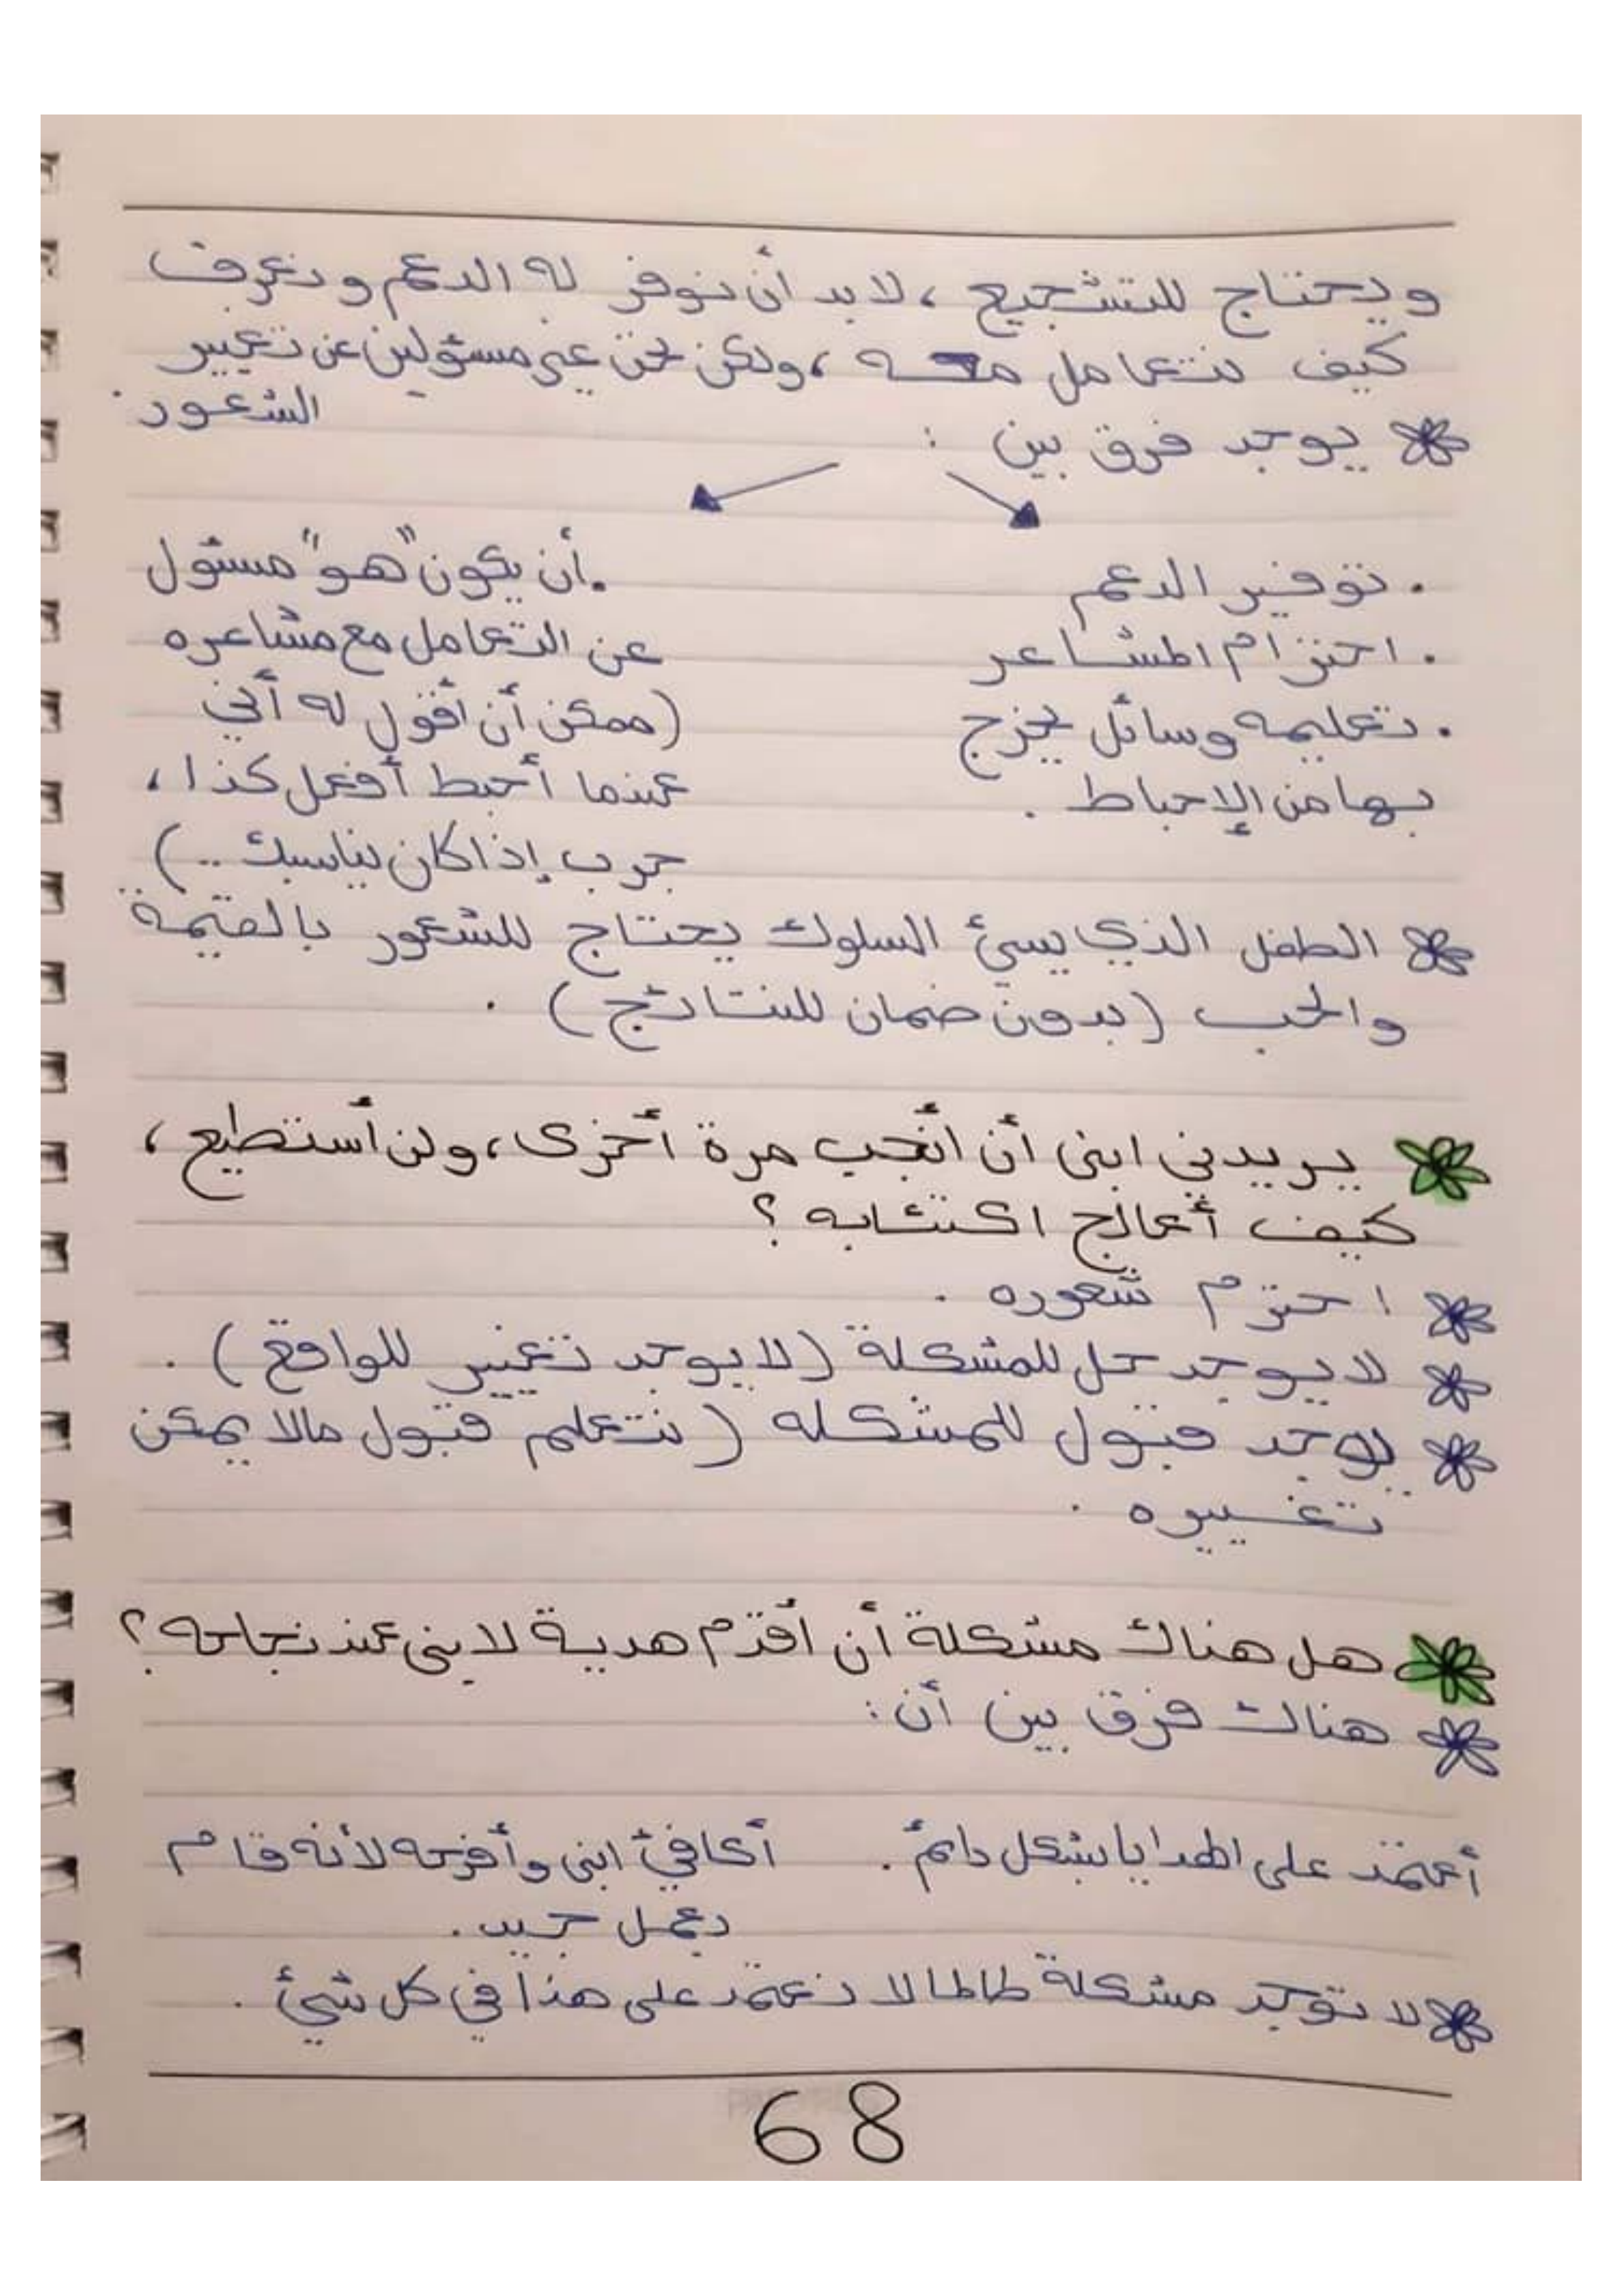 ويحتاج للتشجيع ، لابد أن نوفر له الدعم ونعرف
كيف نتعامل معه ، ولكن نحن غير مسؤولين عن تغيير
الشعور .
يوجد فرق بين :
. توفير الدعم
. احترام المشاعر
. تعليمه وسائل يخرج
بها من الإحباط .
. أن يكون "هو" مسئول
عن التعامل مع مشاعره
(ممكن أن أقول له أني
عندما أحبط أفعل كذا ،
جرب إذا كان يناسبك ..)
الطفل الذي يسيئ السلوك يحتاج للشعور بالقيمة
والحب (بدون ضمان للنتائج) .
يريدني ابني أن أنجب مرة أخرى ، ولن أستطيع ،
كيف أعالج اكتئابه ؟
احترم شعوره .
لا يوجد حل للمشكلة (لا يوجد تغيير للواقع) .
يوجد قبول للمشكله (نتعلم قبول مالا يمكن
تغييره .
هل هناك مشكلة أن أقدم هدية لابني عند نجاحه ؟
هناك فرق بين أن :
أعتمد على الهدايا بشكل دائم .
أكافئ ابني وأفرحه لأنه قام
بعمل جيد .
لا توجد مشكلة طالما لا نعتمد على هذا في كل شيئ .
68